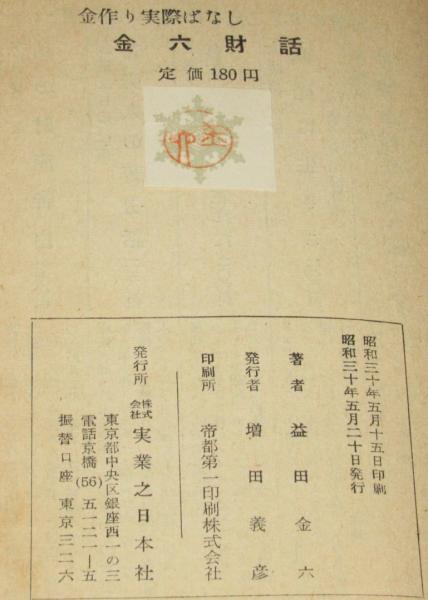 金作り実際ばなし
金六財話
定価180円
昭和三十年五月十五日印刷
昭和三十年五月二十日発行
著者 益田金六
発行者 増田義彦
印刷所 帝都第一印刷株式会社
発行所 株式会社 実業之日本社
東京都中央区銀座西一の三
電話京橋(56)五一二一—五
振替口座 東京三二六